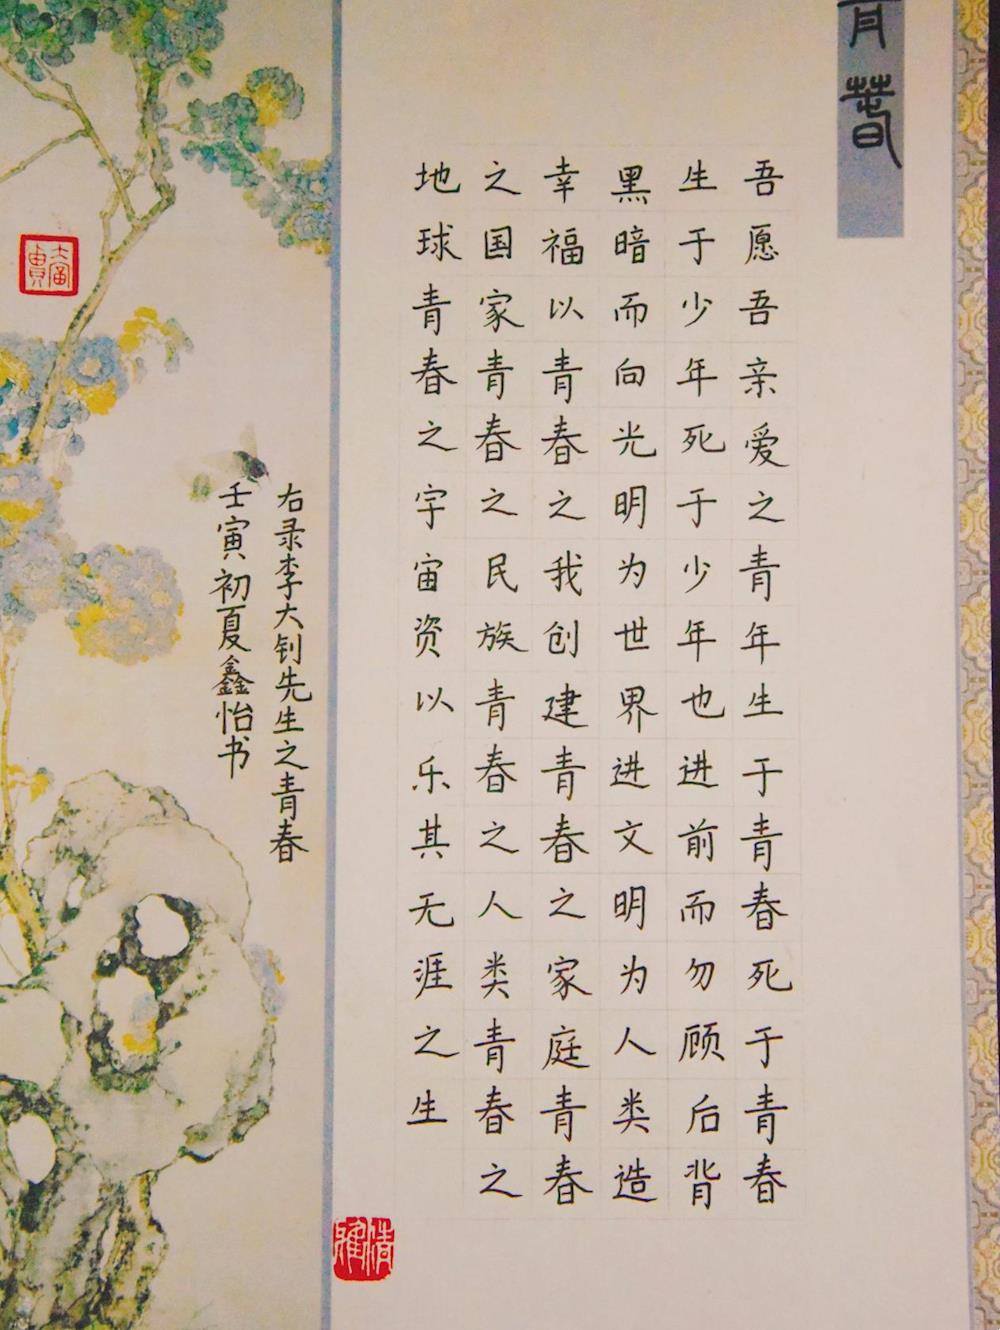 青春
吾愿吾亲爱之青年生于青春死于青春
生于少年死于少年也进前而勿顾后背
黑暗而向光明为世界进文明为人类造
幸福以青春之我创建青春之家庭青春
之国家青春之民族青春之人类青春之
地球青春之宇宙资以乐其无涯之生
右录李大钊先生之青春
壬寅初夏鑫怡书